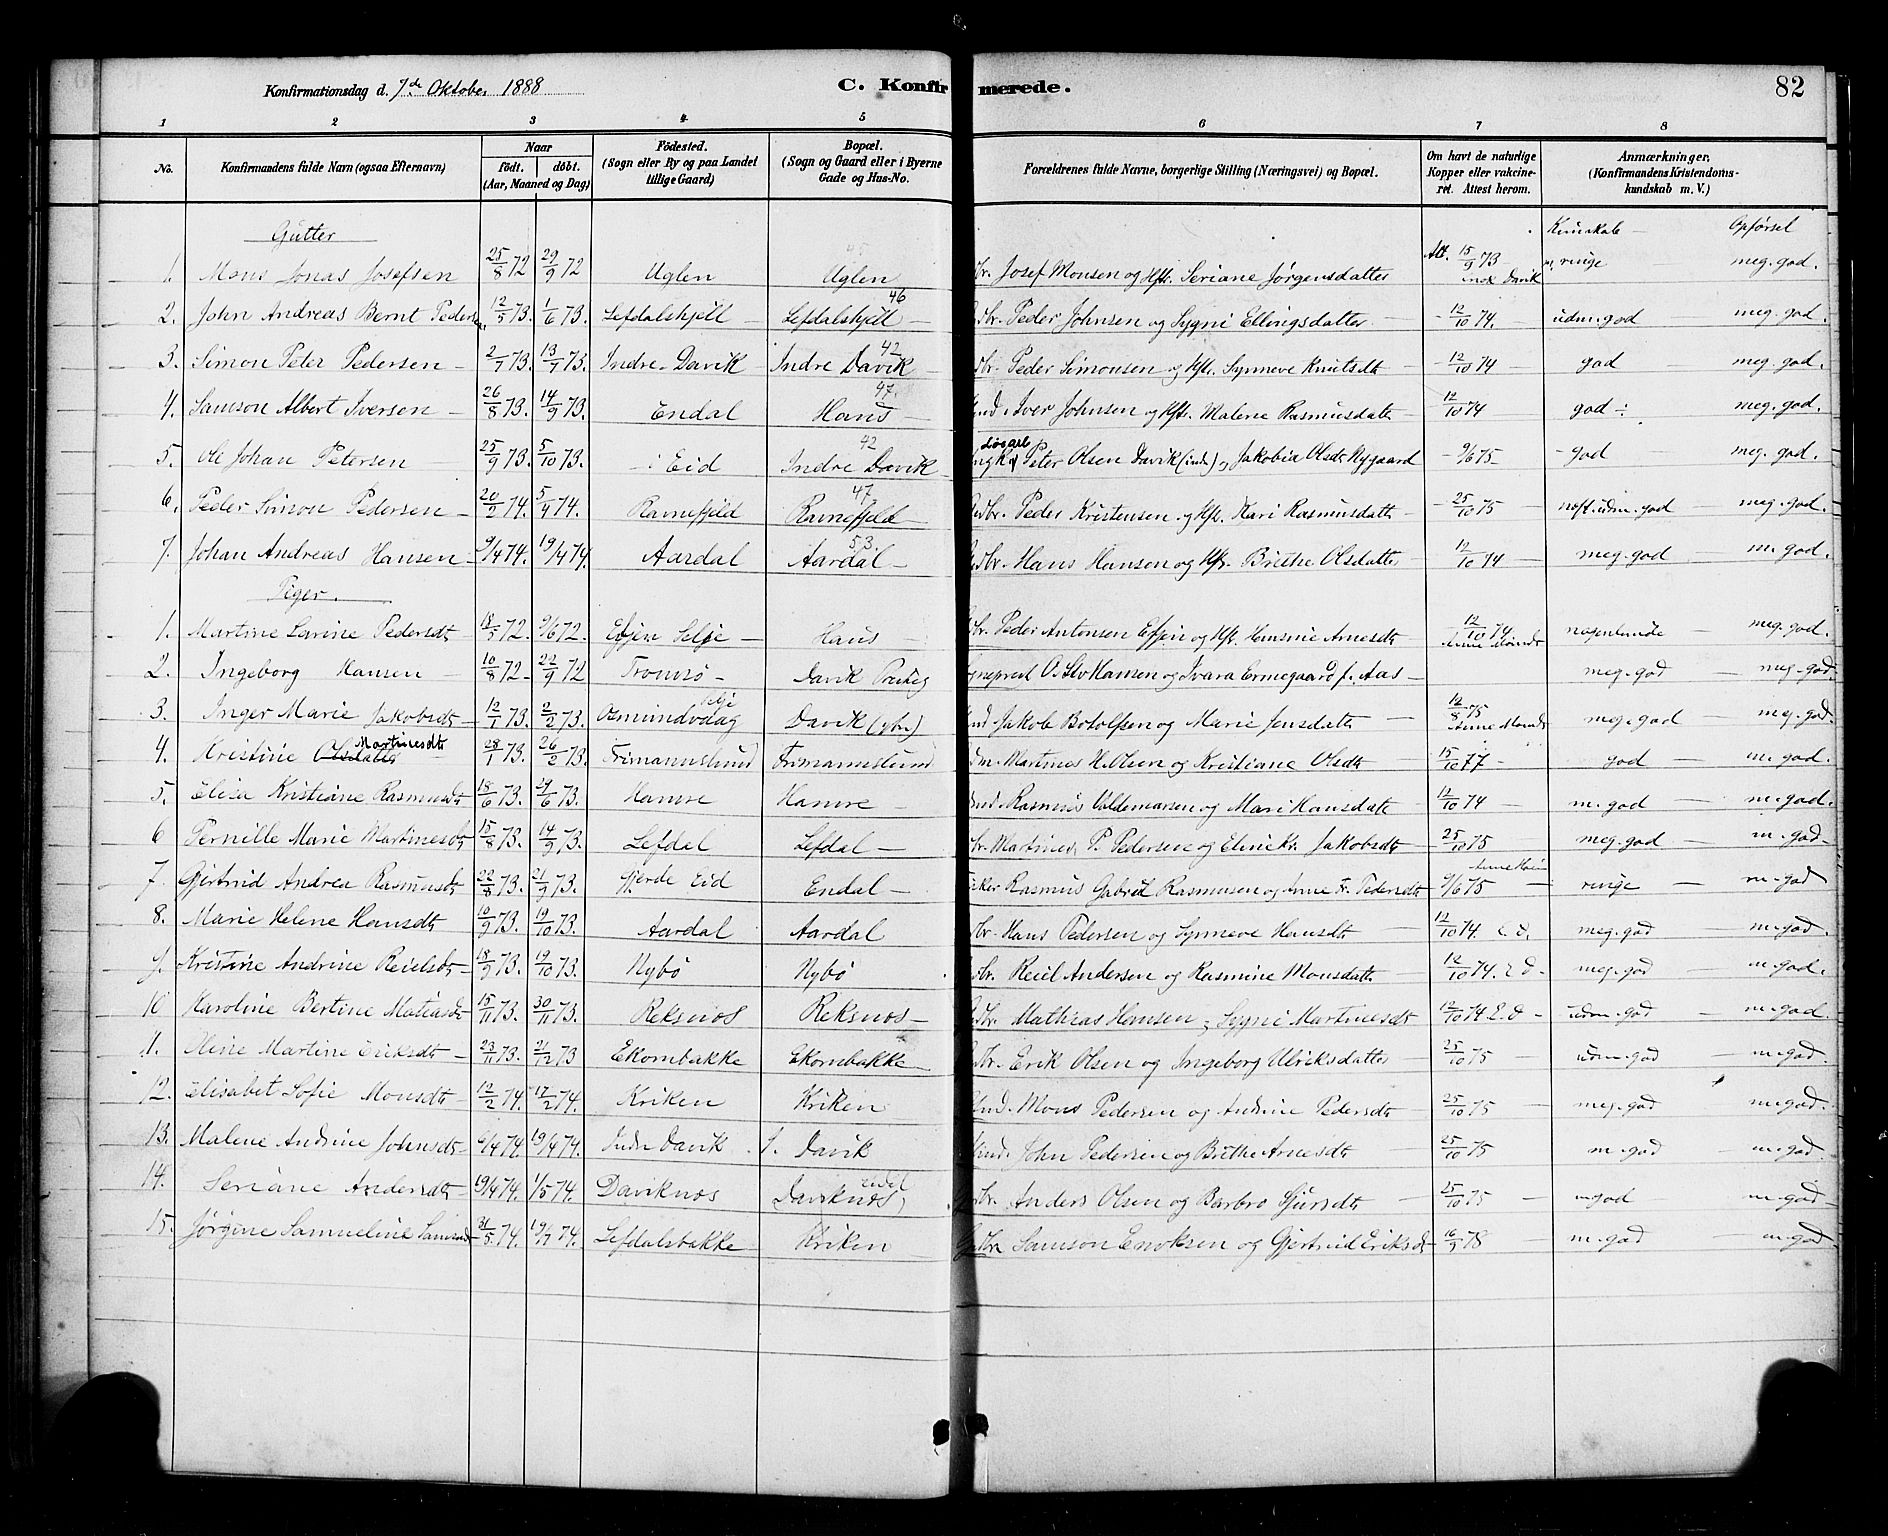 Konfirmationsdag d. 7de Oktober 1888 C. Konfirmerede. 82
1 2 3 4 5 6 7 8
No. Konfirmandens fulde Navn (ogsaa Efternavn) Naar født. døbt. (Aar, Maaned og Dag) Födested. (Sogn eller By og paa Landet tillige Gaard) Bopæl. (Sogn og Gaard eller i Byerne Gade og Hus-No. Forældrenes fulde Navne, borgerlige Stilling (Næringsvei) og Bopæl. Om havt de naturlige Kopper eller vakcineret. Attest herom. Anmærkninger. (Konfirmandens Kristendomskundskab m. V.)
Gutter Kundskab Opførsel
1. Mons Jonas Josefsen 25/8 72 29/9 72 Uglen Uglen Br. Josef Monsen og Hst. Seriane Jørgensdatter Att. 15/9 73 indr Davik m. ringe meg. god.
2. John Andreas Bernt Pedersen 12/5 73. 1/6 73. Lefdalshjell Lefdalshjell 46 Br. Peder Johnsen og Sygni Ellingsdatter 12/10 74. udm. god meg. god.
3. Simon Peter Pedersen 2/7 73. 13/7 73. Indre Davik Indre Davik 42 Br. Peder Simonsen og Hst. Synneve Knutsdt 12/10 74 god meg. god.
4. Samson Albert Iversen 26/8 73. 14/9 73. Endal Haus 47 Ind. Iver Johnsen og Hst. Malene Rasmusdatt 12/10 74 god ÷ meg. god.
5. Ole Johan Petersen 25/9 73. 5/10 73. i Eid Indre Davik 42 Ungk. Løsarb Peter Olsen Davik (indr) og Jakobia Olsdt Nygaard 9/6 75 god meg. god.
6. Peder Simon Pedersen 20/2 74. 5/4 74. Ravnefjeld Ravnefjeld 47 Gbr. Peder Kristensen og Hst. Kari Rasmusdatt 25/10 75 noft. udm. god meg. god
7. Johan Andreas Hansen 9/4 74. 19/4 74. Aardal Aardal 53. Br. Hans Hansen og Hst. Brithe Olsdatter 12/10 74 meg. god m. god.
Piger.
1. Martine Larine Pedersdt 18/5 72. 9/6 72. Efjen Selje Haus Br. Peder Antonsen Efjen og Hst. Hansine Arnesdt 12/10 74. nogenlunde meg. god.
2. Ingeborg Hansen 10/8 72 22/9 72 Tromsø Davik Præsteg Sogneprest O. Hansen og Ivara Ermegaard f. Aas meg. god meg. god
3. Inger Marie Jakobsdt 12/1 73. 2/2 73. Osmundvaag Selje Davik (ytr) Ind. Jakob Botolfsen og Marie Jensdatt 12/8 75 meg. god meg. god
4. Kristine Olsdatter Martinesdt 28/1 73. 26/2 73. Frimannslund Frimannslund Martines H. Olsen og Kristiane Olsdt 15/10 77 god m. god.
5. Elisa Kristiane Rasmusdt 18/6 73. 29/6 73. Hamre Hamre Ind. Rasmus Valdemarsen og Mari Hansdatt 12/10 74 m. god m. god.
6 Pernille Marie Martinesdt 15/8 73. 14/9 73. Lefdal Lefdal Br. Martines P. Pedersen og Jakobsdt 25/10 75 meg. god m. god
7. Gjertrud Andrea Rasmusdt 22/8 73. 21/9 73. Gjerde Eid Endal Rasmus Gabriel Rasmusen og Anne Fr. Pedersdt 9/6 75 ringe m. god
8. Marie Helene Hansdt 10/9 73. 19/10 73. Aardal Aardal Br. Hans Pedersen og Synneve Hansdt 12/10 74. E. D. meg. god m. god.
9. Kristine Andrine Reielsdt 18/9 73. 19/10 73. Nybø Nybø Br. Reiel Andersen og Rasmine Monsdatt. 12/10 74. E D meg. god m. god.
10 Karoline Bertine Matiasdt 15/11 73. 30/11 73. Reksnos Reksnos Gbr. Mathias Hansen og Sygni Martinesdt 12/10 74 E. D udm. god m. god
11. Oline Martine Eriksdt 23/11 73. 21/12 73 Ekornbakke Ekornbakke Br. Erik Olsen og Ingeborg Ulriksdatter 25/10 75 udm. god m. god
12. Elisabet Sofie Monsdt 12/2 74. 17/2 74. Kriken Kriken Ind. Mons Pedersen og Andrine Pedersdt 25/10 75 meg. god m. god.
13. Malene Andrine Johnsdt 6/4 74. 19/4 74. Indr Davik I. Davik Ind. John Pedersen og Brithe Arnesdt 25/10 75 m. god m. god.
14. Seriane Andersdt 19/4 74. 1/5 74. Daviknos Daviknos Br. Anders Olsen og Barbro Sjursdt 25/10 75 m. god m. god
15. Jørgine Samueline Samsonsdt 31/5 74. 19/7 74. Lefdalsbakke Kriken Gbr. Samson Enoksen og Gjertrud Eriksdt 16/9 78 m. god m. god